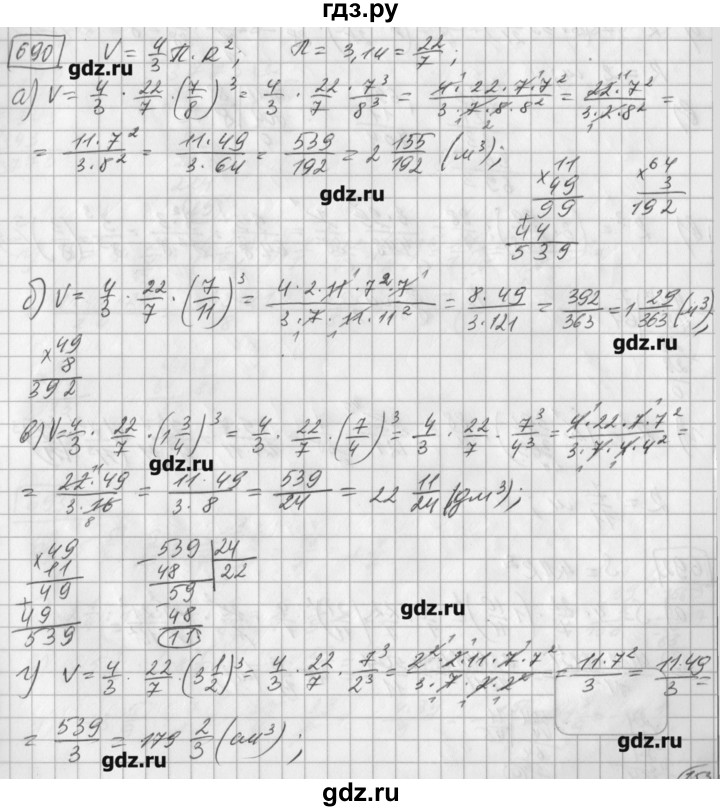 гдз.ру
690 V = 4/3 П · R²; П = 3,14 = 22/7;
gdz.ru
а) V = 4/3 · 22/7 · (7/8)³ = 4/3 · 22/7 · 7³/8³ = 4 · 22 · 7 · 7²/3 · 7 · 8 · 8² = 22 · 7²/3 · 2 · 8² =
= 11 · 7²/3 · 8² = 11 · 49/3 · 64 = 539/192 = 2 155/192 (м³);
gdz.ru
×11 ×64
49 3
99 192
+44
539
gdz.ru
б) V = 4/3 · 22/7 · (7/11)³ = 4 · 2 · 11 · 7² · 7/3 · 7 · 11 · 11² = 8 · 49/3 · 121 = 392/363 = 1 29/363 (м³);
gdz.ru
×49
8
392
в) V = 4/3 · 22/7 · (1 3/4)³ = 4/3 · 22/7 · (7/4)³ = 4/3 · 22/7 · 7³/4³ = 4 · 22 · 7 · 7²/3 · 7 · 4 · 4² =
gdz.ru
= 22 · 49/3 · 16 = 11 · 49/3 · 8 = 539/24 = 22 11/24 (дм³);
×49 539 24
11 48 22
49 59
+49 48
539 11
gdz.ru
г) V = 4/3 · 22/7 · (3 1/2)³ = 4/3 · 22/7 · 7³/2³ = 2² · 2 · 11 · 7 · 7²/3 · 7 · 2 · 2² = 11 · 7²/3 = 11 · 49/3 =
= 539/3 = 179 2/3 (см³);
gdz.ru
gdz.ru
gdz.ru